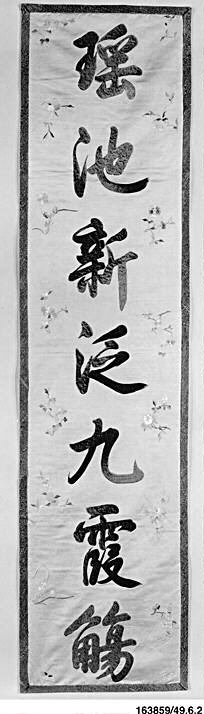 瑶池新泛九霞觴
163859/49.6.2